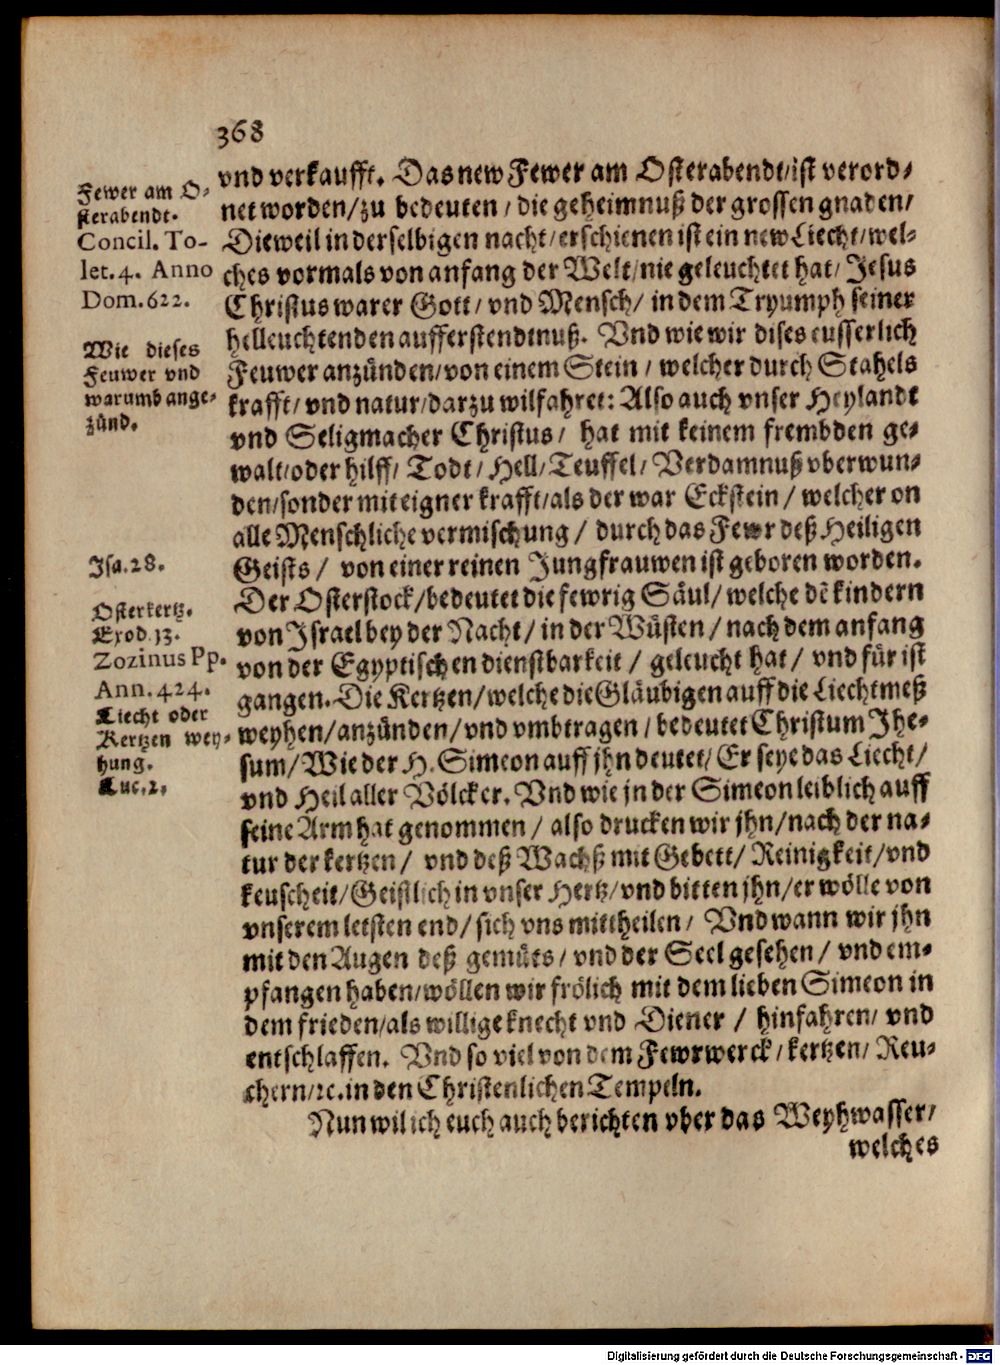 368
Fewer am O-
sterabendt.
Concil. To-
let. 4. Anno
Dom. 622.
Wie dieses
Feuwer vnd
warumb ange-
zünd.
Isa. 28.
Osterkertz.
Exod. 13.
Zozinus Pp.
Ann. 424.
Liecht oder
Kertzen wey-
hung.
Luc. 2.
vnd verkaufft. Das new Fewer am Osterabendt/ ist verord-
net worden/ zu bedeuten / die geheimnuß der grossen gnaden/
Dieweil in derselbigen nacht/ erschienen ist ein new Liecht/ wel-
ches vormals von anfang der Welt/ nie geleuchtet hat/ Jesus
Christus warer Gott/ vnd Mensch/ in dem Tryumph seiner
helleuchtenden aufferstendtnuß. Vnd wie wir dises eusserlich
Feuwer anzünden/ von einem Stein / welcher durch Stahels
krafft/ vnd natur/ darzu wilfahret: Also auch vnser Heylandt
vnd Seligmacher Christus/ hat mit keinem frembden ge-
walt/ oder hilff/ Todt/ Hell/ Teuffel/ Verdamnuß vberwun-
den/ sonder mit eigner krafft/ als der war Eckstein / welcher on
alle Menschliche vermischung / durch das Fewr deß Heiligen
Geists/ von einer reinen Jungfrauwen ist geboren worden.
Der Osterstock/ bedeutet die fewrig Säul/ welche dẽ kindern
von Israel bey der Nacht/ in der Wüsten / nach dem anfang
von der Egyptischen dienstbarkeit / geleucht hat/ vnd für ist
gangen. Die Kertzen/ welche die Gläubigen auff die Liechtmeß
weyhen/ anzünden/ vnd vmbtragen / bedeutet Christum Ihe-
sum/ Wie der H. Simeon auff jhn deutet/ Er seye das Liecht/
vnd Heil aller Völcker. Vnd wie jn der Simeon leiblich auff
seine Arm hat genommen / also drucken wir jhn/ nach der na-
tur der kertzen/ vnd deß Wachß mit Gebett/ Reinigkeit/ vnd
keuscheit/ Geistlich in vnser Hertz/ vnd bitten jhn/ er wölle von
vnserem letsten end/ sich vns mittheilen/ Vnd wann wir jhn
mit den Augen deß gemüts/ vnd der Seel gesehen/ vnd em-
pfangen haben/ wöllen wir frölich mit dem lieben Simeon in
dem frieden/ als willige knecht vnd Diener / hinfahren/ vnd
entschlaffen. Vnd so viel von dem Fewrwerck/ kertzen/ Reu-
chern/ ꝛc. in den Christenlichen Tempeln.
Nun wil ich euch auch berichten vber das Weyhwasser/
welches
Digitalisierung gefördert durch die Deutsche Forschungsgemeinschaft - DFG